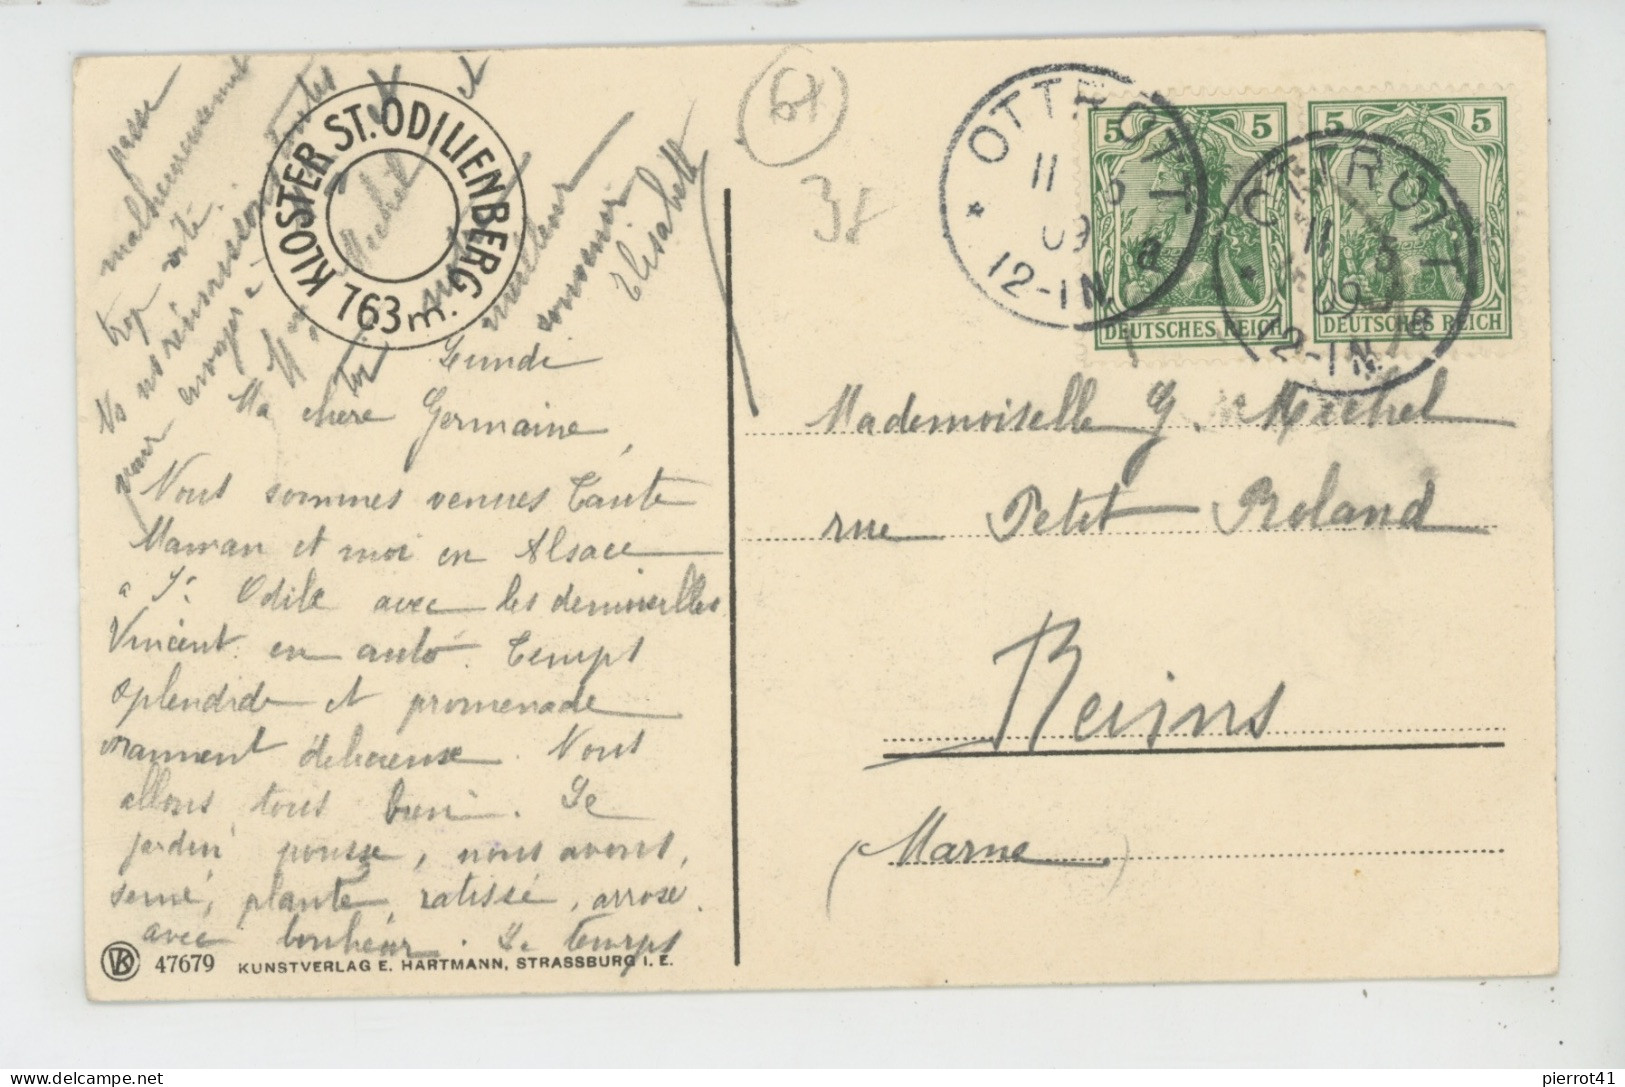 Lundi
Ma chère Germaine,
Nous sommes venues Tante
Maman et moi en Alsace
a Ste Odile avec les demoiselles
Vincent en auto. Temps
splendide et promenade
vraiment délicieuse. Nous
allons tous bien. Le
jardin pousse, nous avons
semé, planté, ratissé, arrosé
avec bonheur. Le temps
passe
malheureusement
trop vite.
Nous réunissons toutes
pour envoyer à
Michel et
toi
meilleur
souvenir
Elisabeth
KLOSTER ST. ODILIENBERG
763 m.
47679 KUNSTVERLAG E. HARTMANN, STRASSBURG I. E.
OTTROTT
11 5
09
12-1N. a
5 5
DEUTSCHES REICH
5 5
DEUTSCHES REICH
OTTROTT
11 5
09
12-1N. a
Mademoiselle G. Michel
rue Petit-Roland
Reims
(Marne)
pierrot41